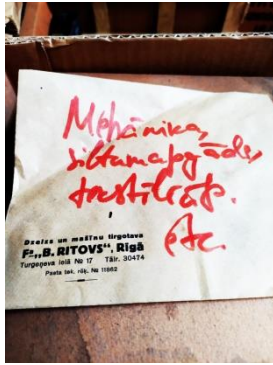 Mehānika,
siltumapgāde,
tekstilrūp.
etc.
Dzelzs un mašīnu tirgotava
F-a „B. RITOVS“, Rīgā
Turgeņeva ielā № 17 Tālr. 30474
Pasta tek. rēķ. № 11662